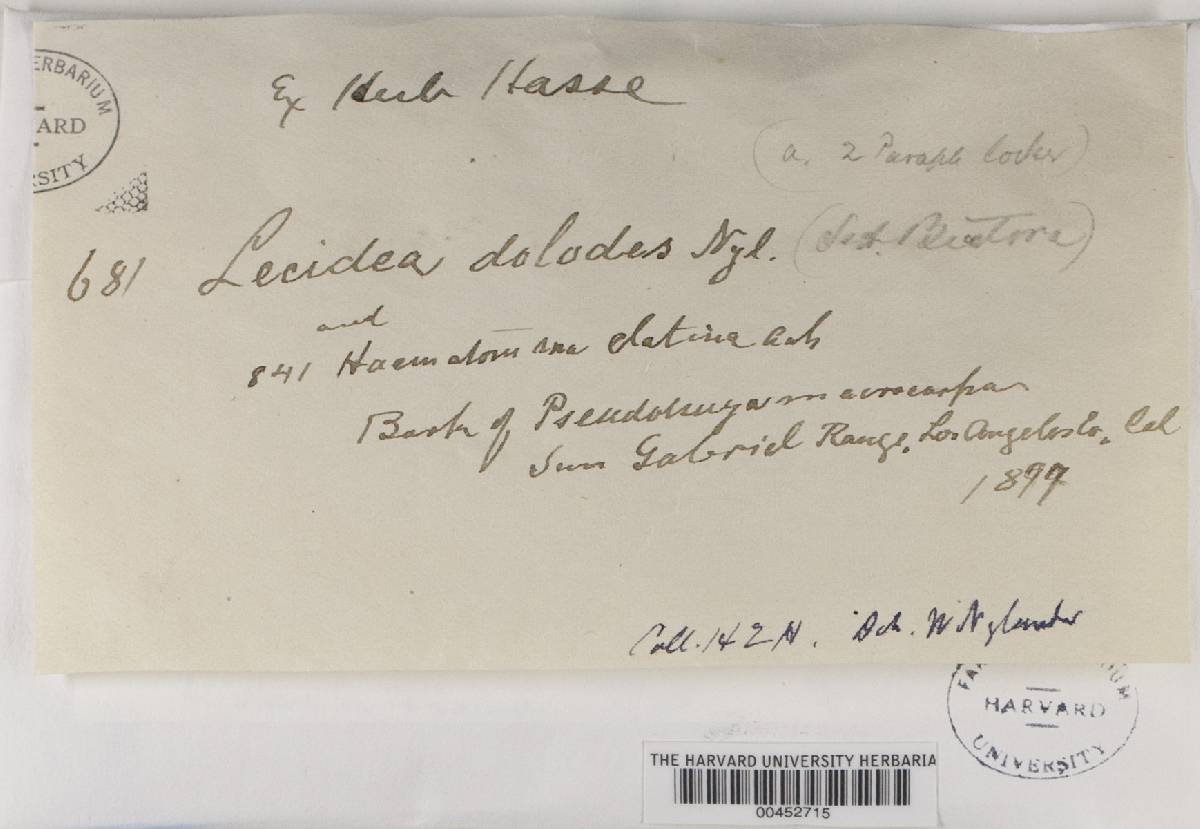 ERBARIUM
ARD
SITY
Ex Herb Hasse
(a. 2 Paraph locker)
681 Lecidea dolodes Nyl. (Sect. Biatora)
and
841 Haematomma elatina Ach
Bark of Pseudotsuga macrocarpa
San Gabriel Range, Los Angeles Co, Cal
1897
Coll. H. E. H. Det. W Nylander
FA UM
HARVARD
UNIVERSITY
THE HARVARD UNIVERSITY HERBARIA
00452715